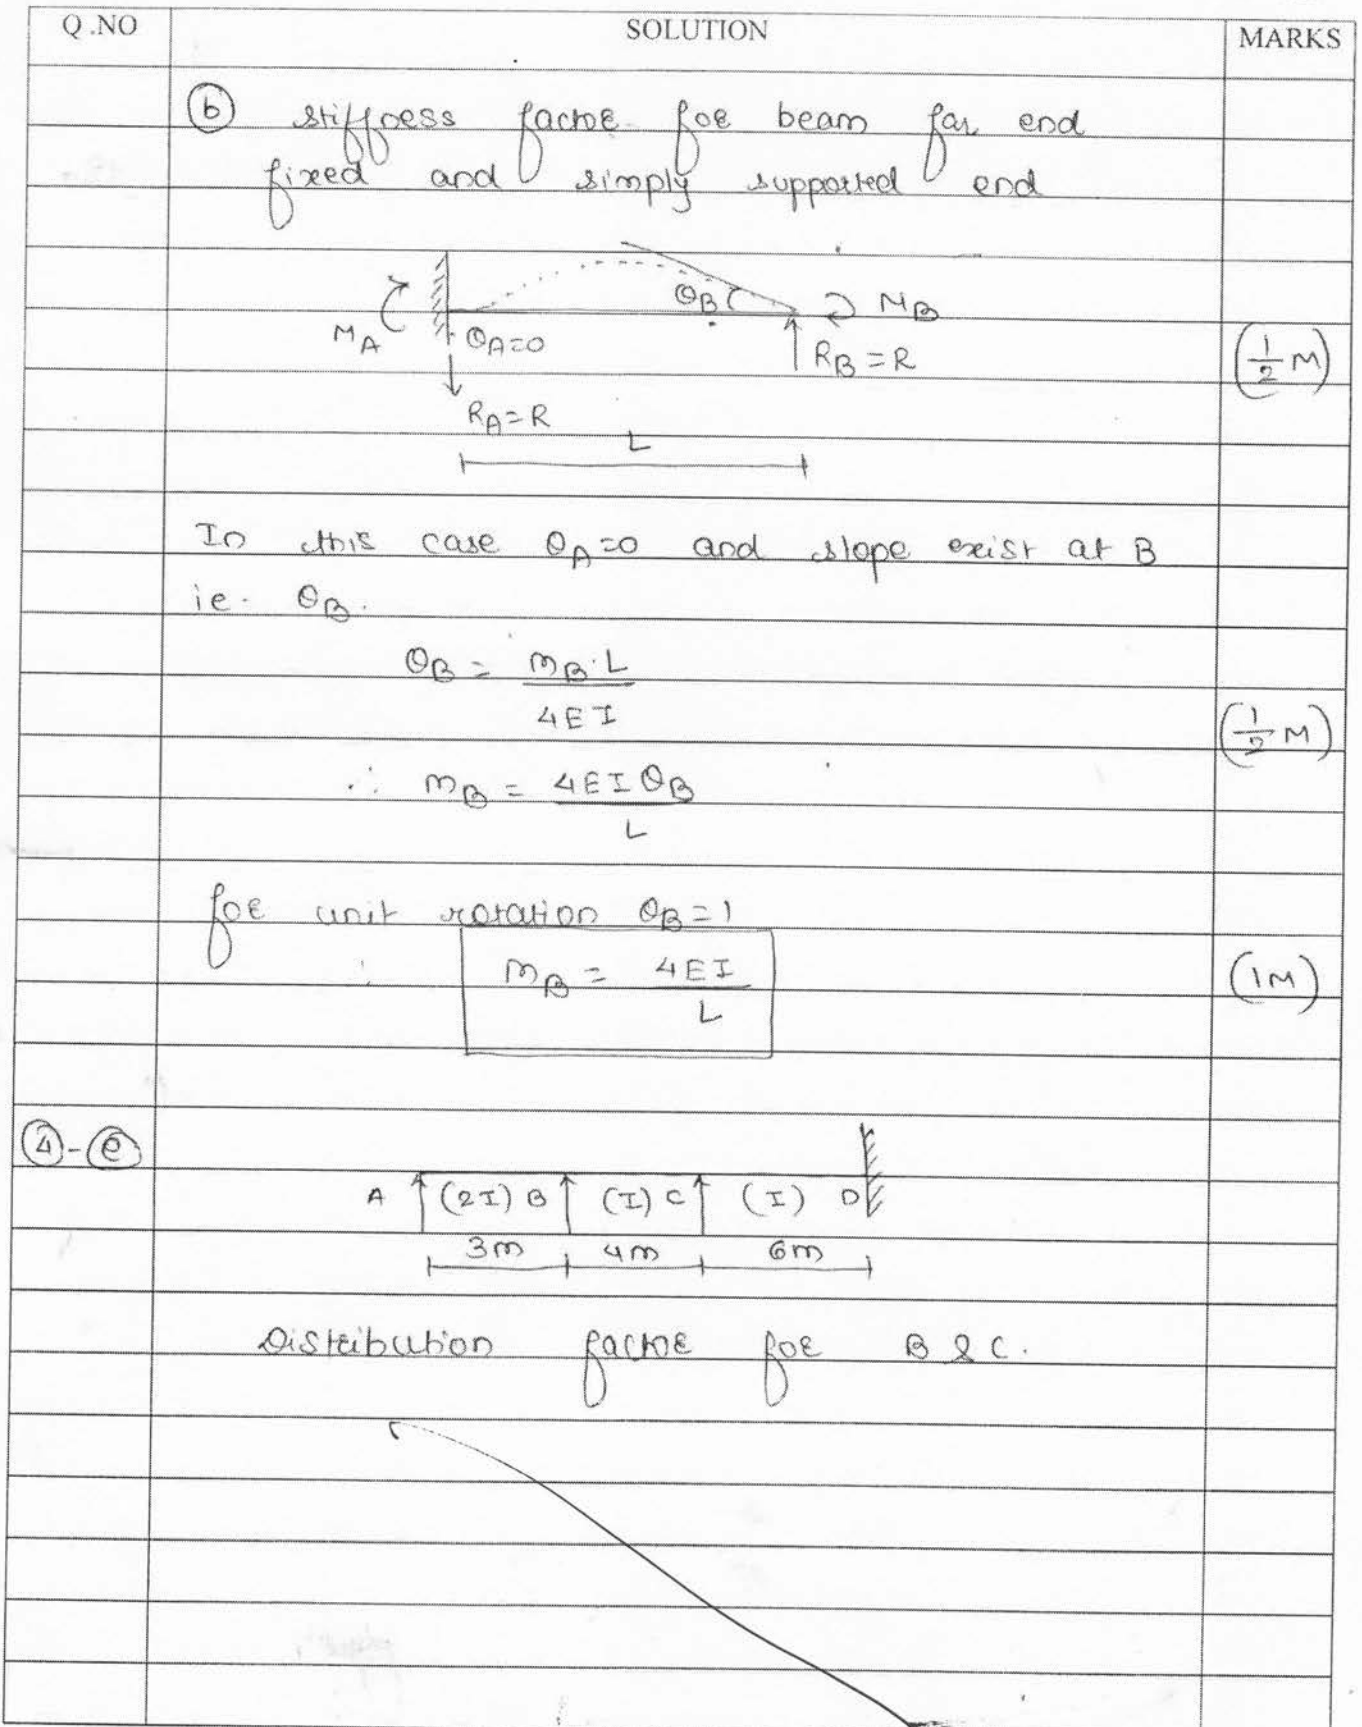 Q.NO SOLUTION MARKS
(b) stiffness factor for beam far end
fixed and simply supported end
θB MB
MA θA=0
RB = R (1/2 M)
RA = R
L
In this case θA=0 and slope exist at B
ie. θB.
θB = mB.L / 4EI (1/2 M)
∴ mB = 4EIθB / L
for unit rotation θB=1
∴ mB = 4EI / L (1M)
(4)-(e)
A (2I) B (I) C (I) D
3m 4m 6m
Distribution factor for B & C.